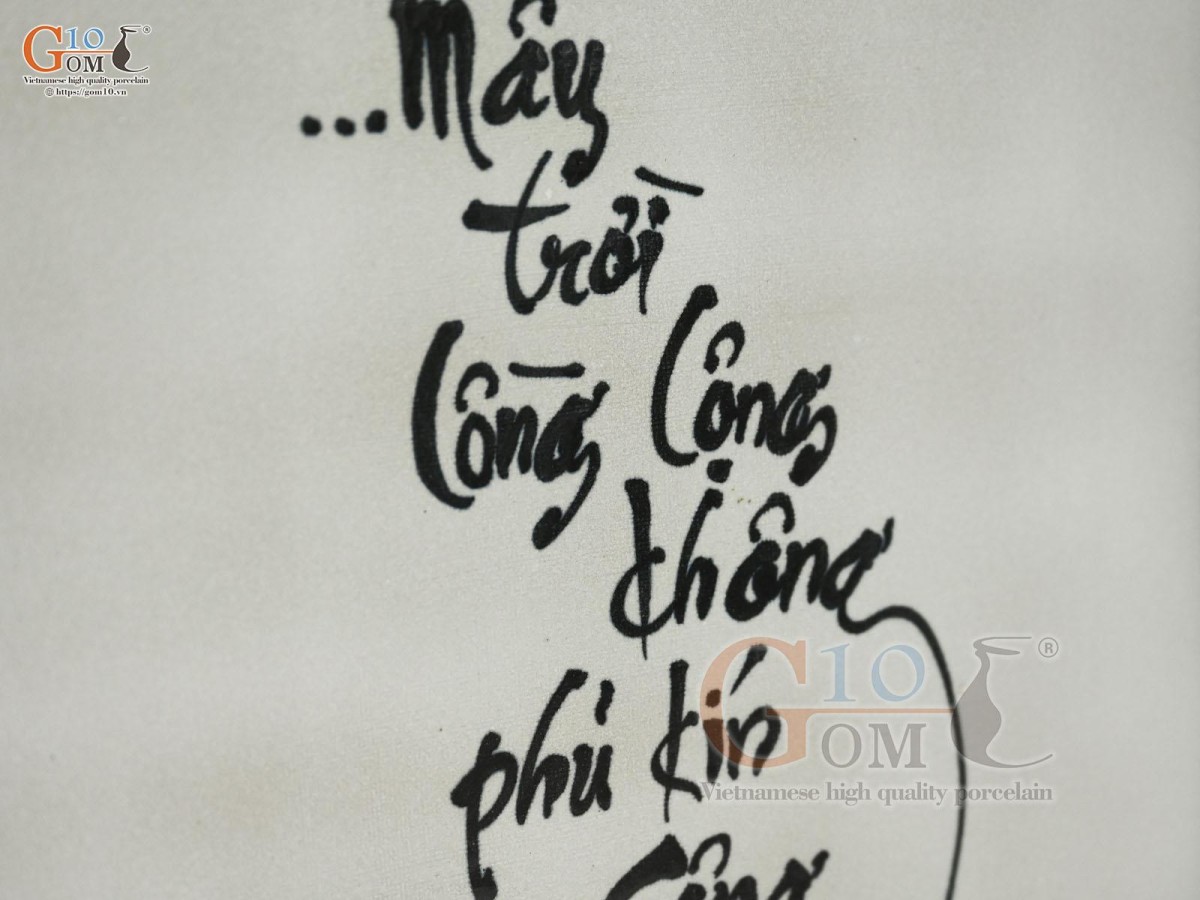 G10
GOM®
Vietnamese high quality porcelain
@ https://gom10.vn
...Mây
trời
Lồng Lộng
không
phủ kín
Công
G10
GOM®
Vietnamese high quality porcelain